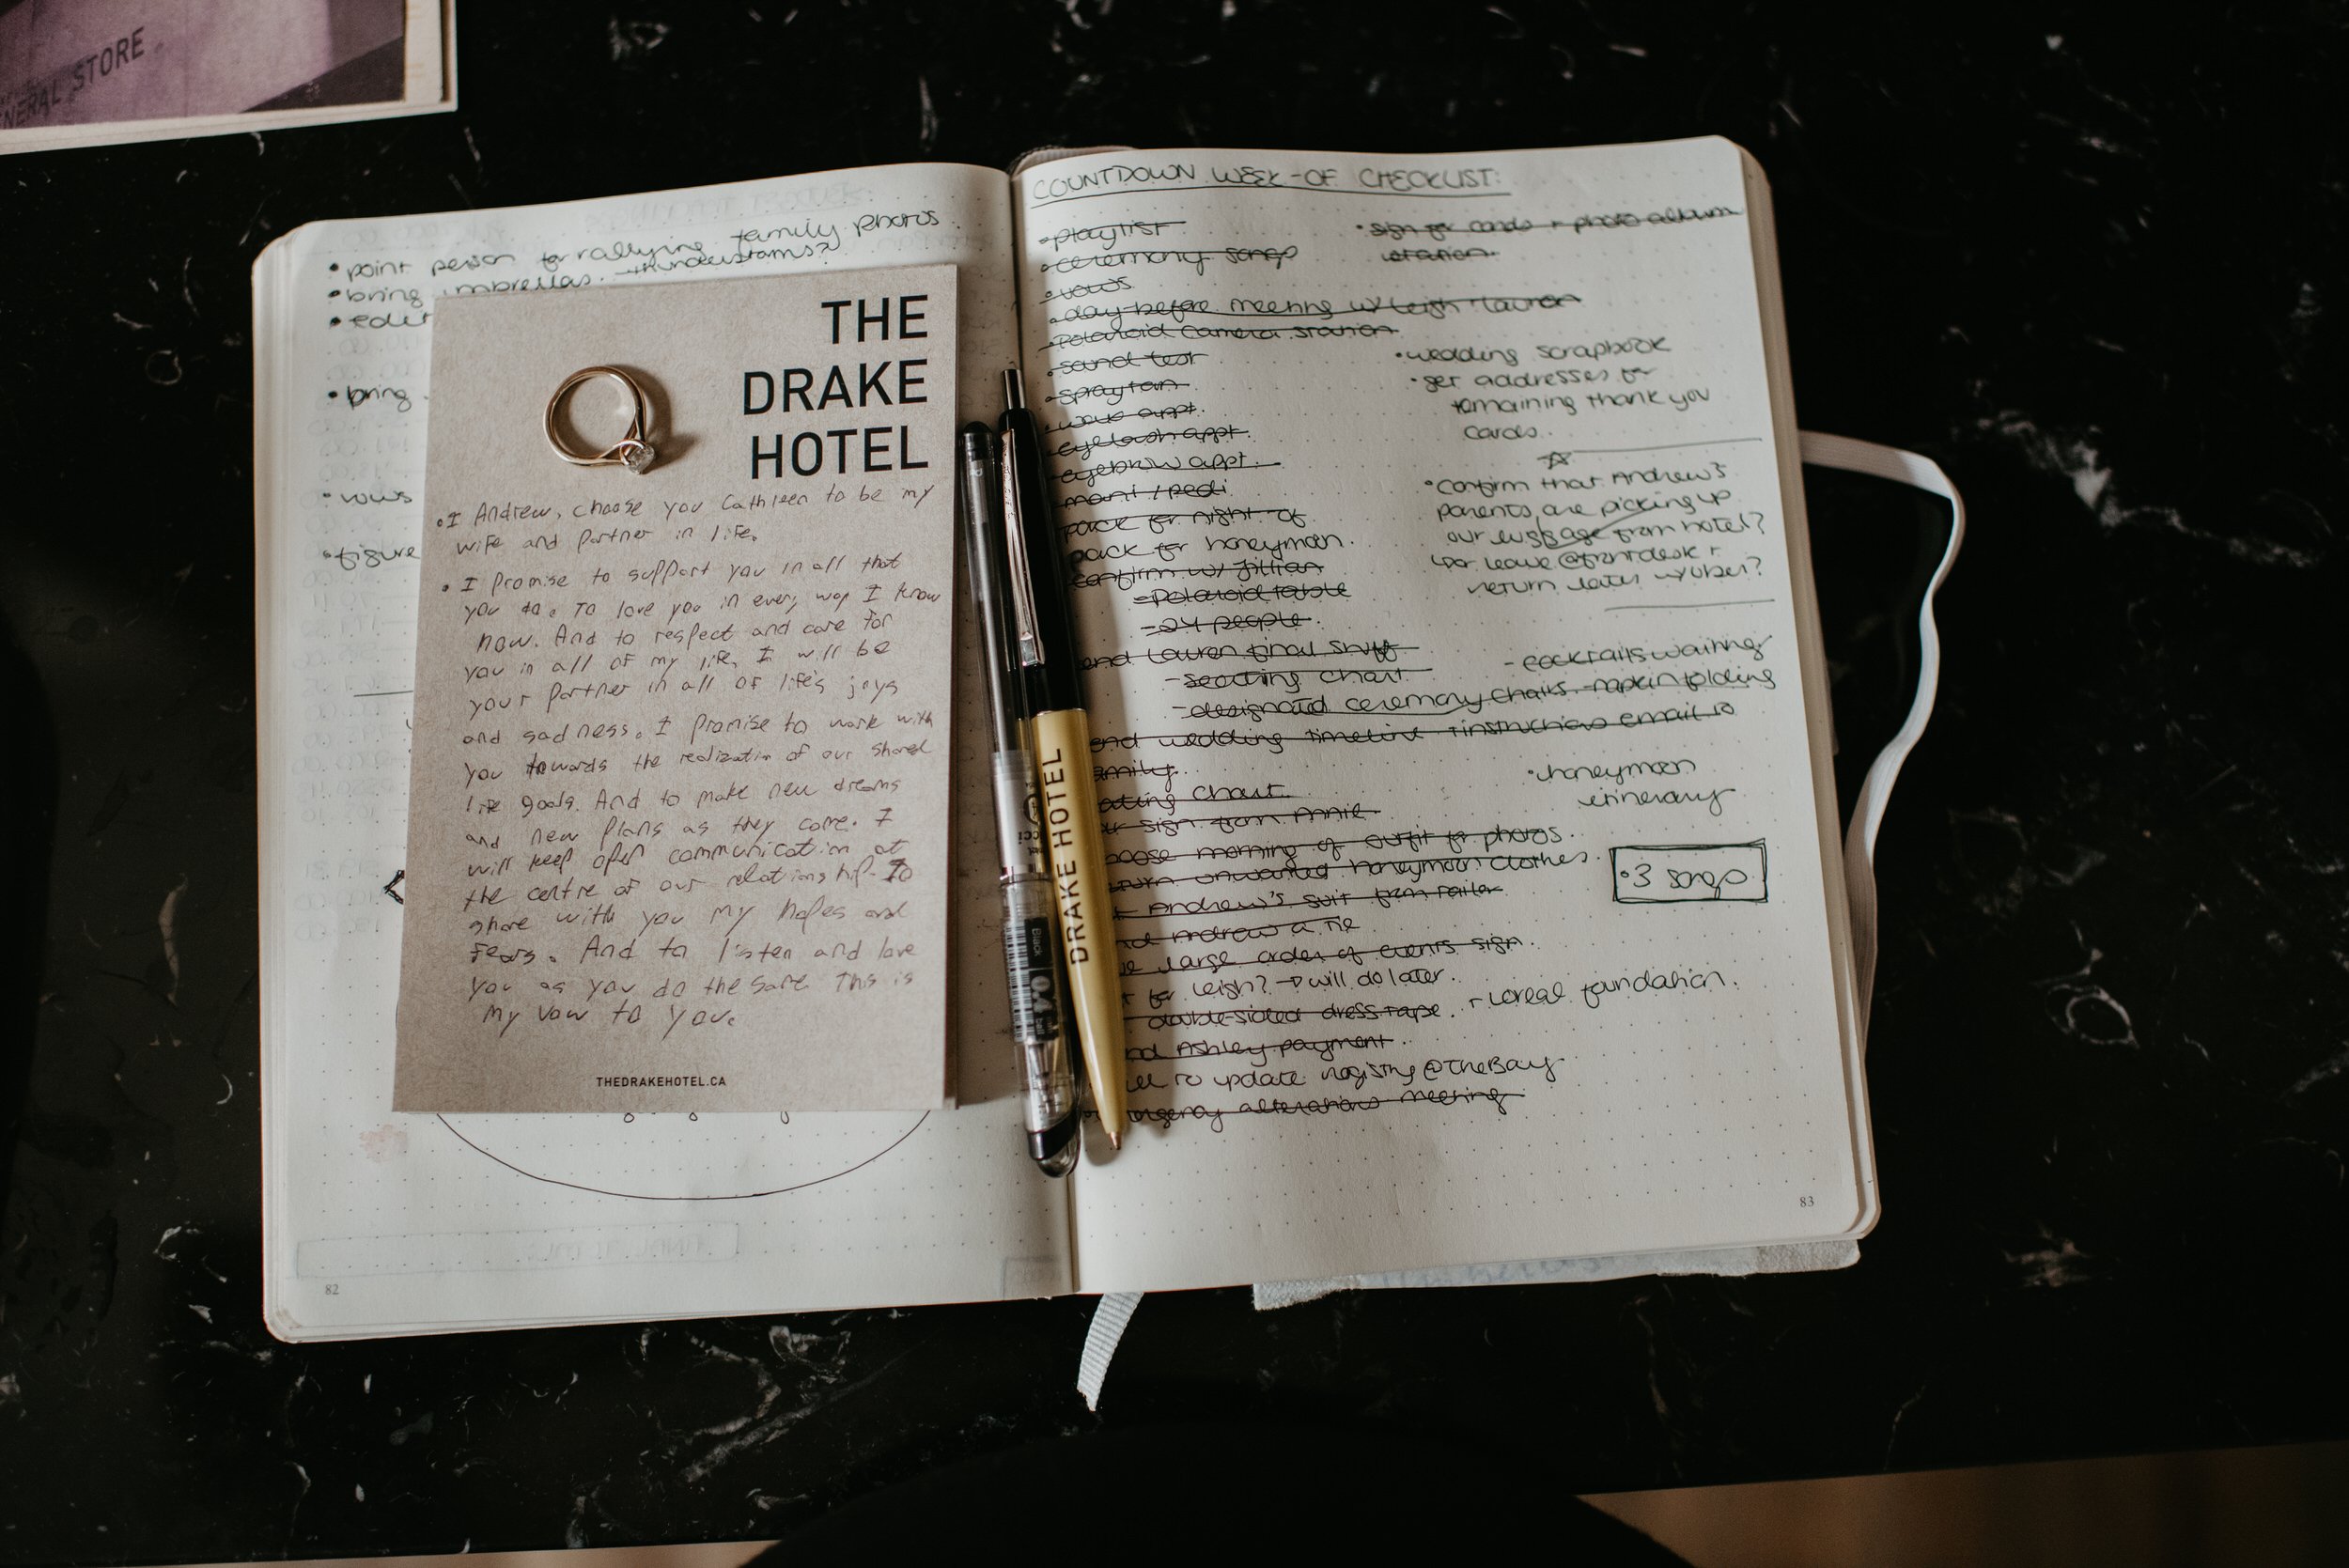 GENERAL STORE
• point person for rallying family photos
• bring umbrellas. thunderstorms?
• edit
• bring
• vows
• figure
THE
DRAKE
HOTEL
• I Andrew, choose you Cathleen to be my
wife and partner in life.
• I promise to support you in all that
you do. To love you in every way I know
how. And to respect and care for
you in all of my life. I will be
your partner in all of life's joys
and sadness. I promise to work with
you towards the realization of our shared
life goals. And to make new dreams
and new plans as they come. I
will keep open communication at
the centre of our relationship. To
share with you my hopes and
fears. And to listen and love
you as you do the same. This is
my vow to you.
THEDRAKEHOTEL.CA
82
DRAKE HOTEL
Black
COUNTDOWN WEEK-OF CHECKLIST:
• playlist
• ceremony songs
• vows
• day-before meeting w/ Leigh + Lauren
• Polaroid camera station
• sound test
• spray tan
• wax appt.
• eyelash appt.
• eyebrow appt.
mani / pedi
pack for night of
pack for honeymoon.
confirm w/ Jillian
- Polaroid table
- 24 people
end Lauren final stuff
- seating chart
- designated ceremony chairs - napkin folding
end wedding timeline + instructions email to
family
ating chart
sign from Annie
oose morning of outfit for photos.
urn unwanted honeymoon clothes
Andrew's suit from tailor
nd Andrew a tie
large order of events sign.
for Leigh? → will do later.
double-sided dress tape. + Loreal foundation.
nd Ashley payment
to update registry @ The Bay
ergency alterations meeting
• sign for cards + photo album
station.
• wedding scrapbook
• get addresses for
remaining thank you
cards.
• confirm that Andrew's
parents are picking up
our luggage from hotel?
or leave @ front desk +
return later w/ uber?
- cocktails waiting
• honeymoon
itinerary
• 3 songs
83